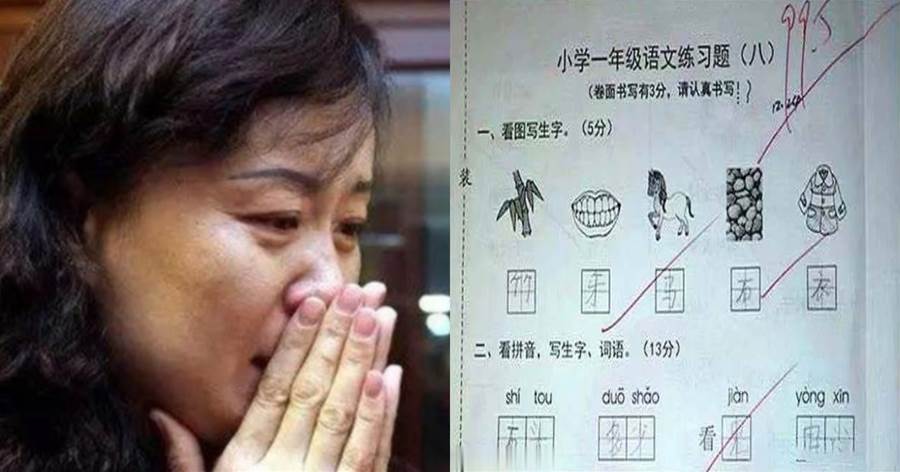 99.5
小学一年级语文练习题（八）
（卷面书写有3分，请认真书写！）
一、看图写生字。（5分）
装
竹 牙 马 石 衣
二、看拼音，写生字、词语。（13分）
shí tou duō shǎo jiàn yòng xīn
石头 多少 看见 用心